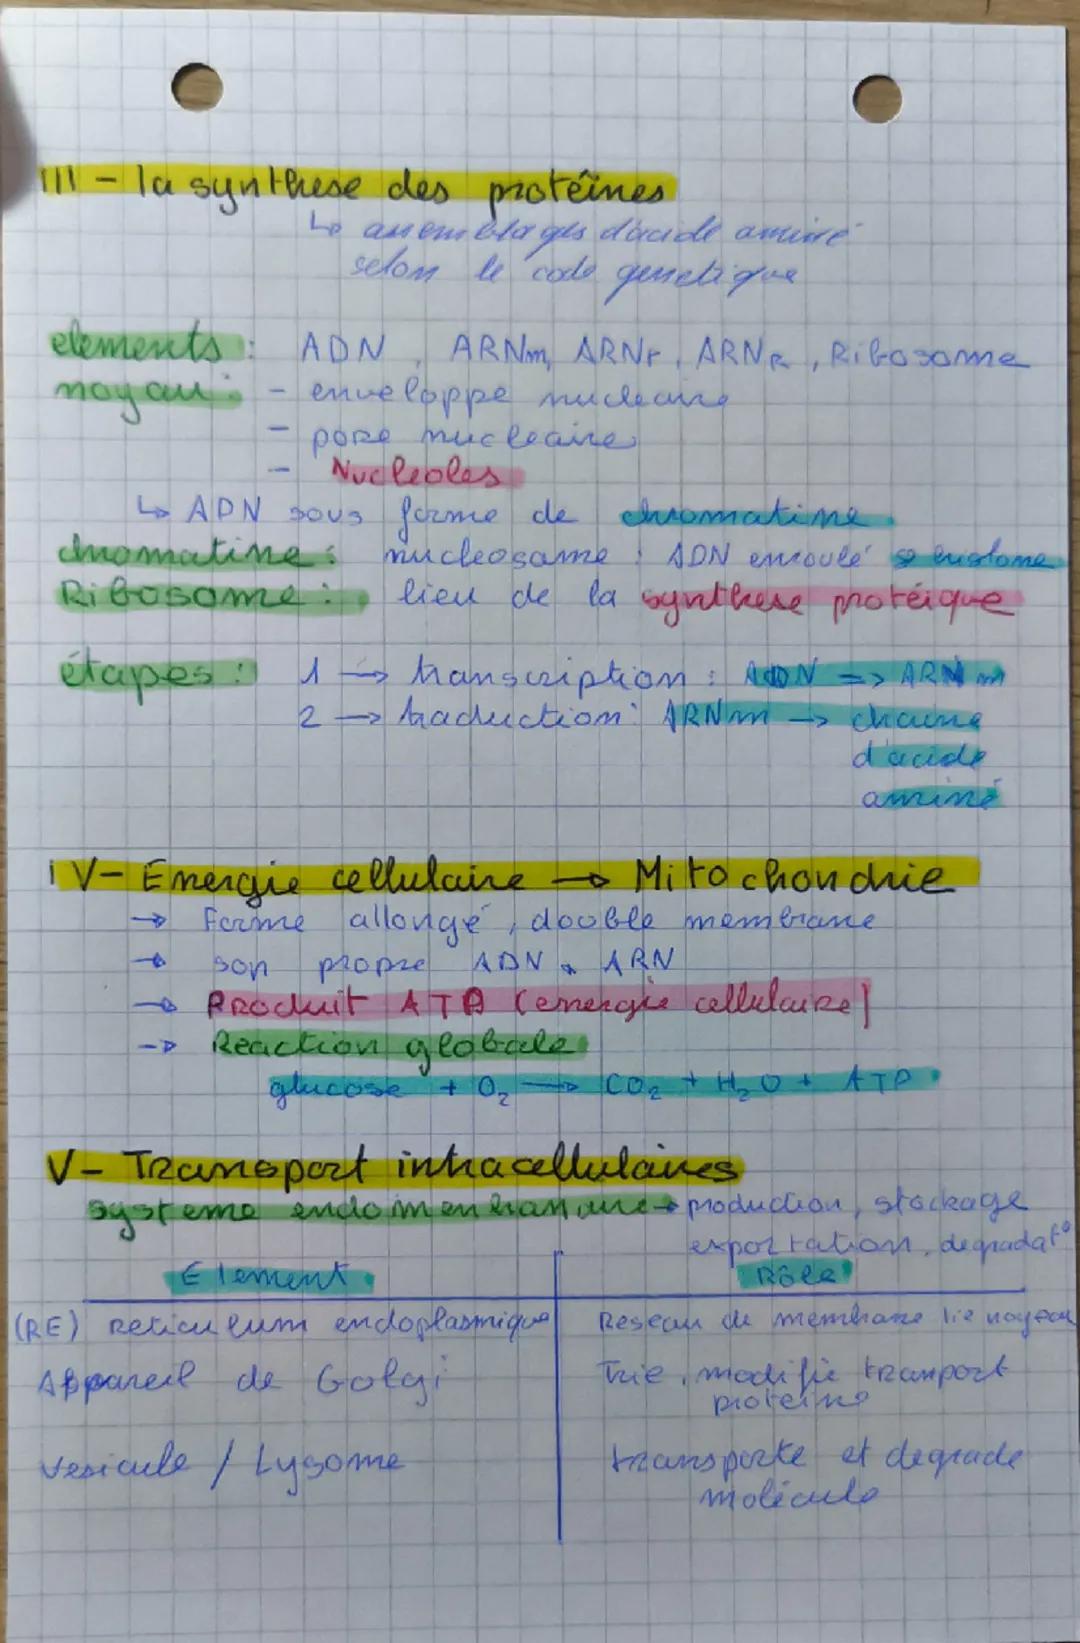 III - la synthese des protéines
↳ assemblages d'acide aminé
selon le code genetique
elements : ADN, ARNm, ARNt, ARNR, Ribosome
noyau : - enveloppe nucleaire
- pore nucleaire
- Nucleoles
↳ ADN sous forme de chromatine
chromatine : nucleosome : ADN enroulé histone
Ribosome : lieu de la synthese protéique
étapes : 1 → transcription : ADN => ARNm
2 → traduction : ARNm → chaine
d'acide
aminé
IV- Energie cellulaire → Mitochondrie
→ Forme allongé, double membrane
→ son propre ADN & ARN
→ Produit ATP (energie cellulaire)
→ Reaction globale
glucose + O₂ → CO₂ + H₂O + ATP
V- Transport intracellulaires
systeme endomembranaire → production, stockage
exportation, degradat°
Element Rôle
(RE) reticulum endoplasmique Reseau de membrane lie noyau
Appareil de Golgi Trie, modifie tranport
proteine
vesicule / Lysome transporte et degrade
molécule